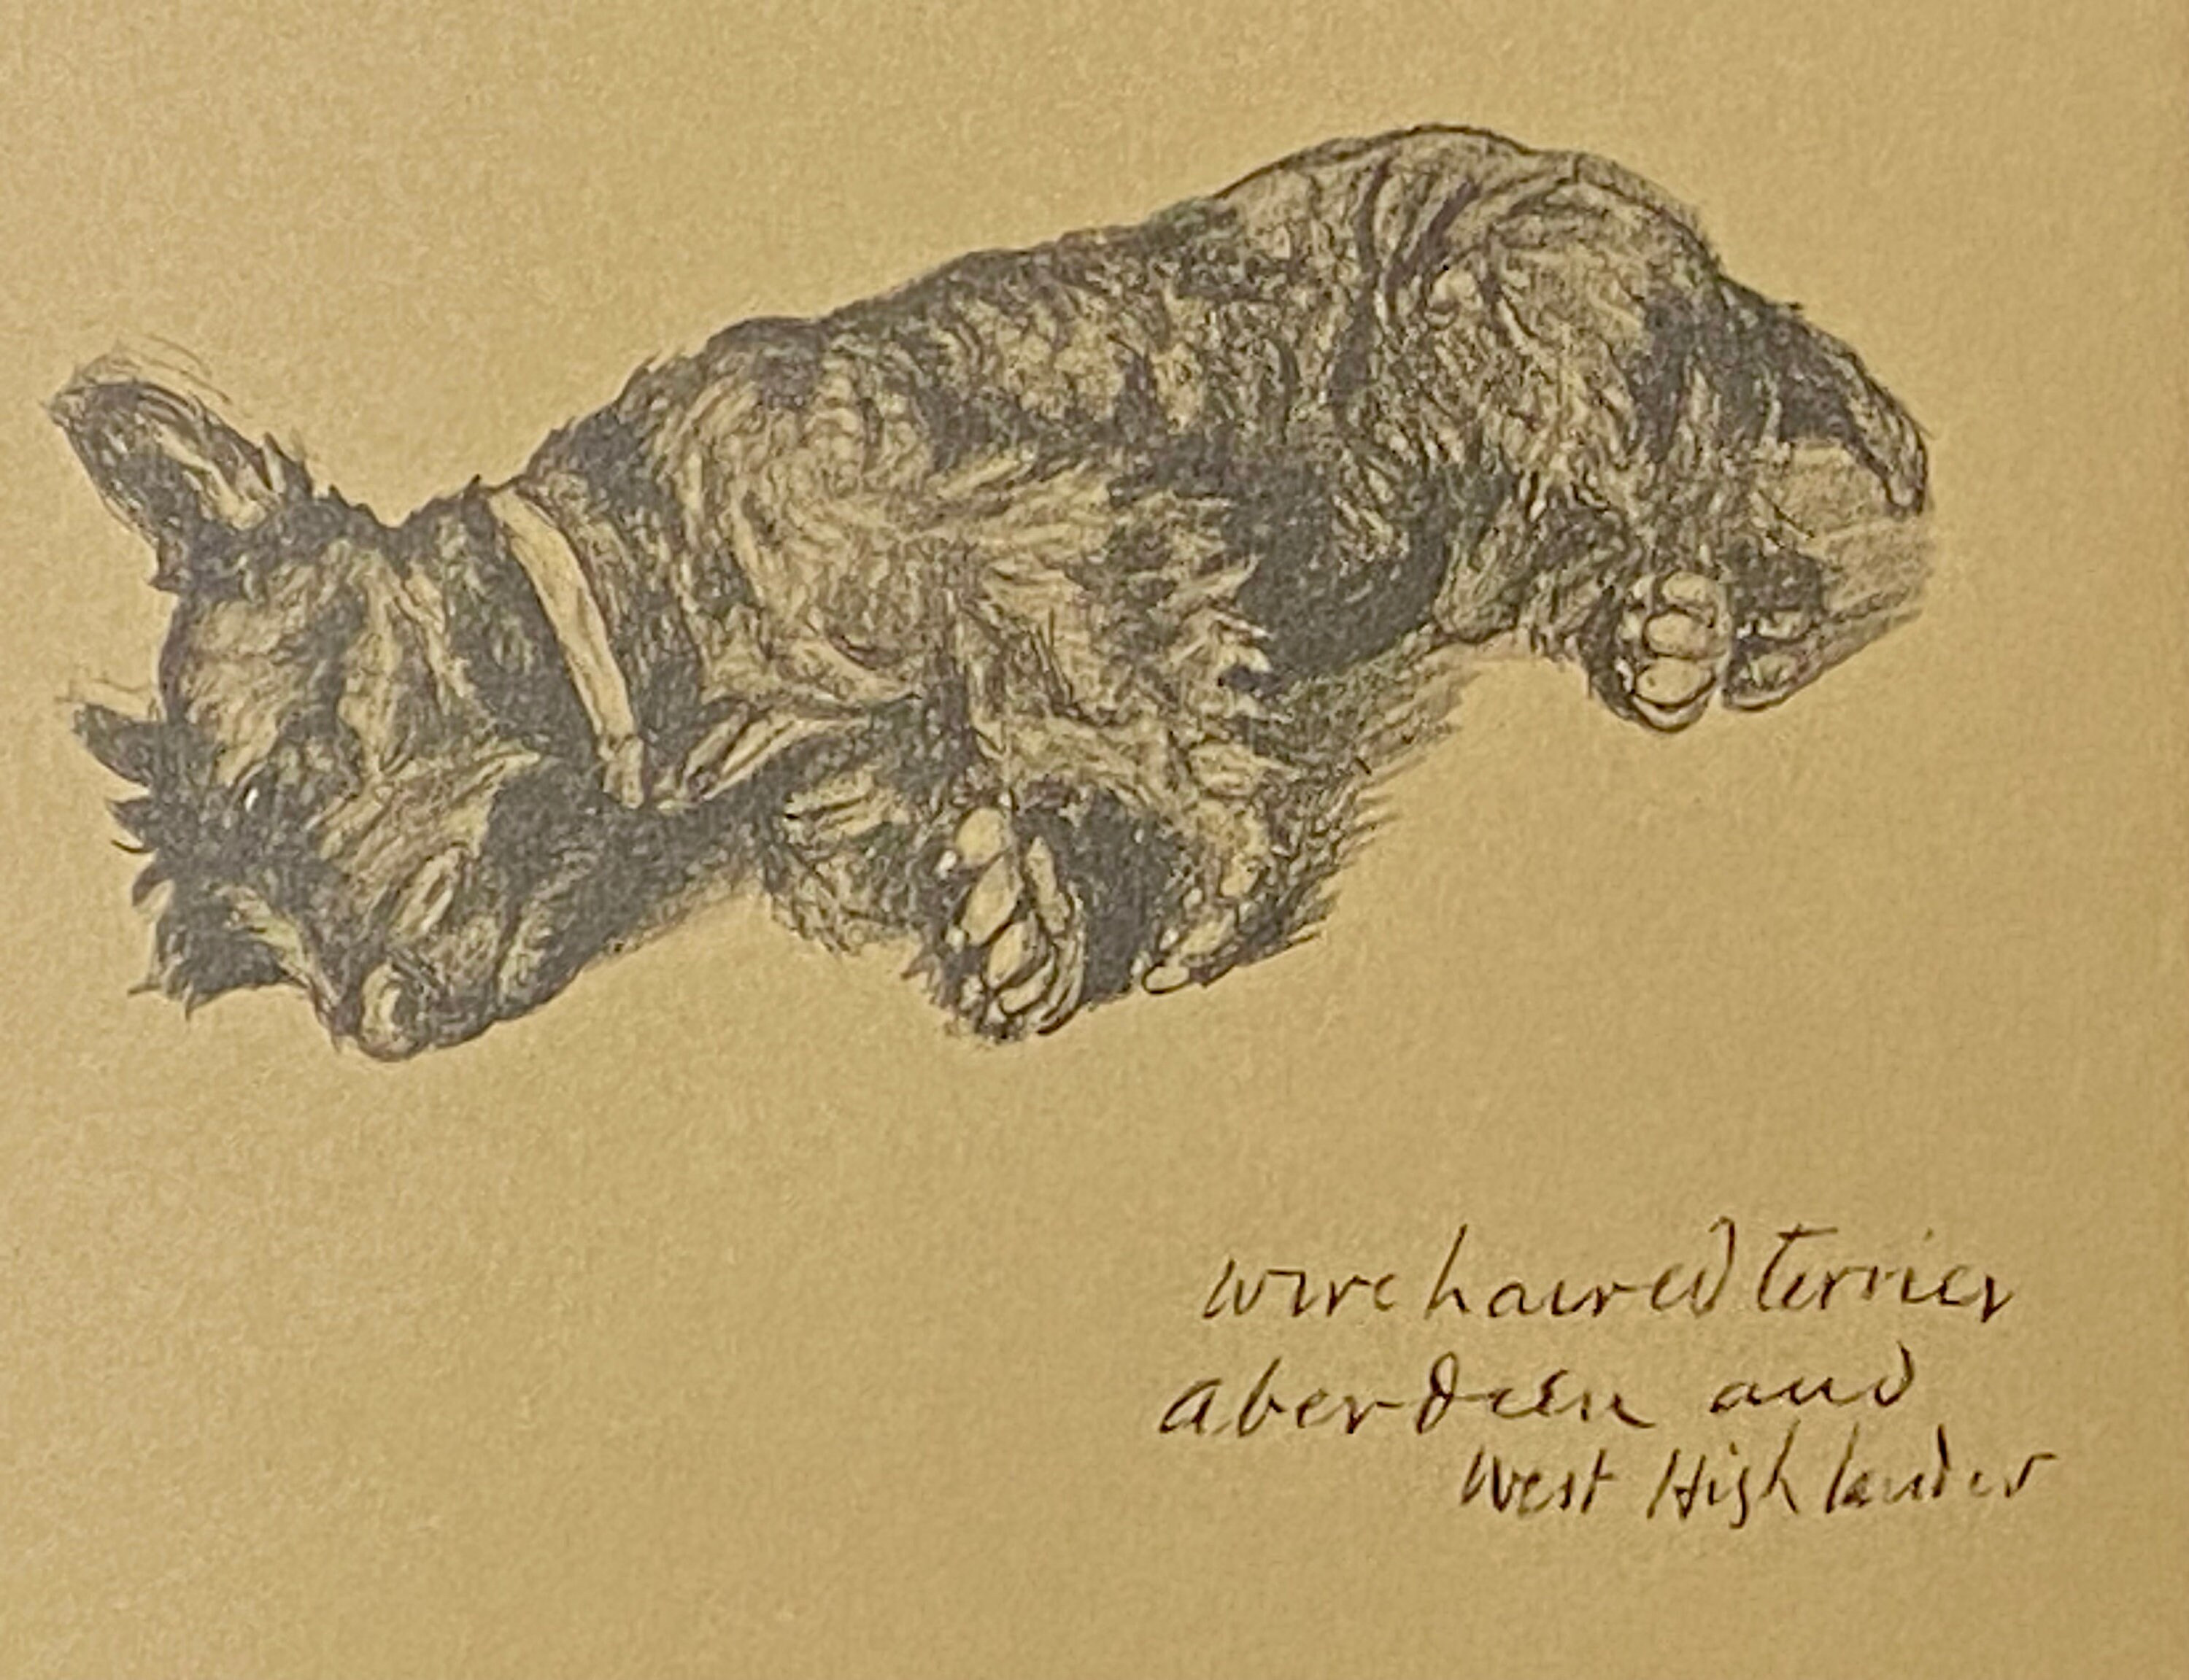 wire haired terrier
aberdeen and
West Highlander